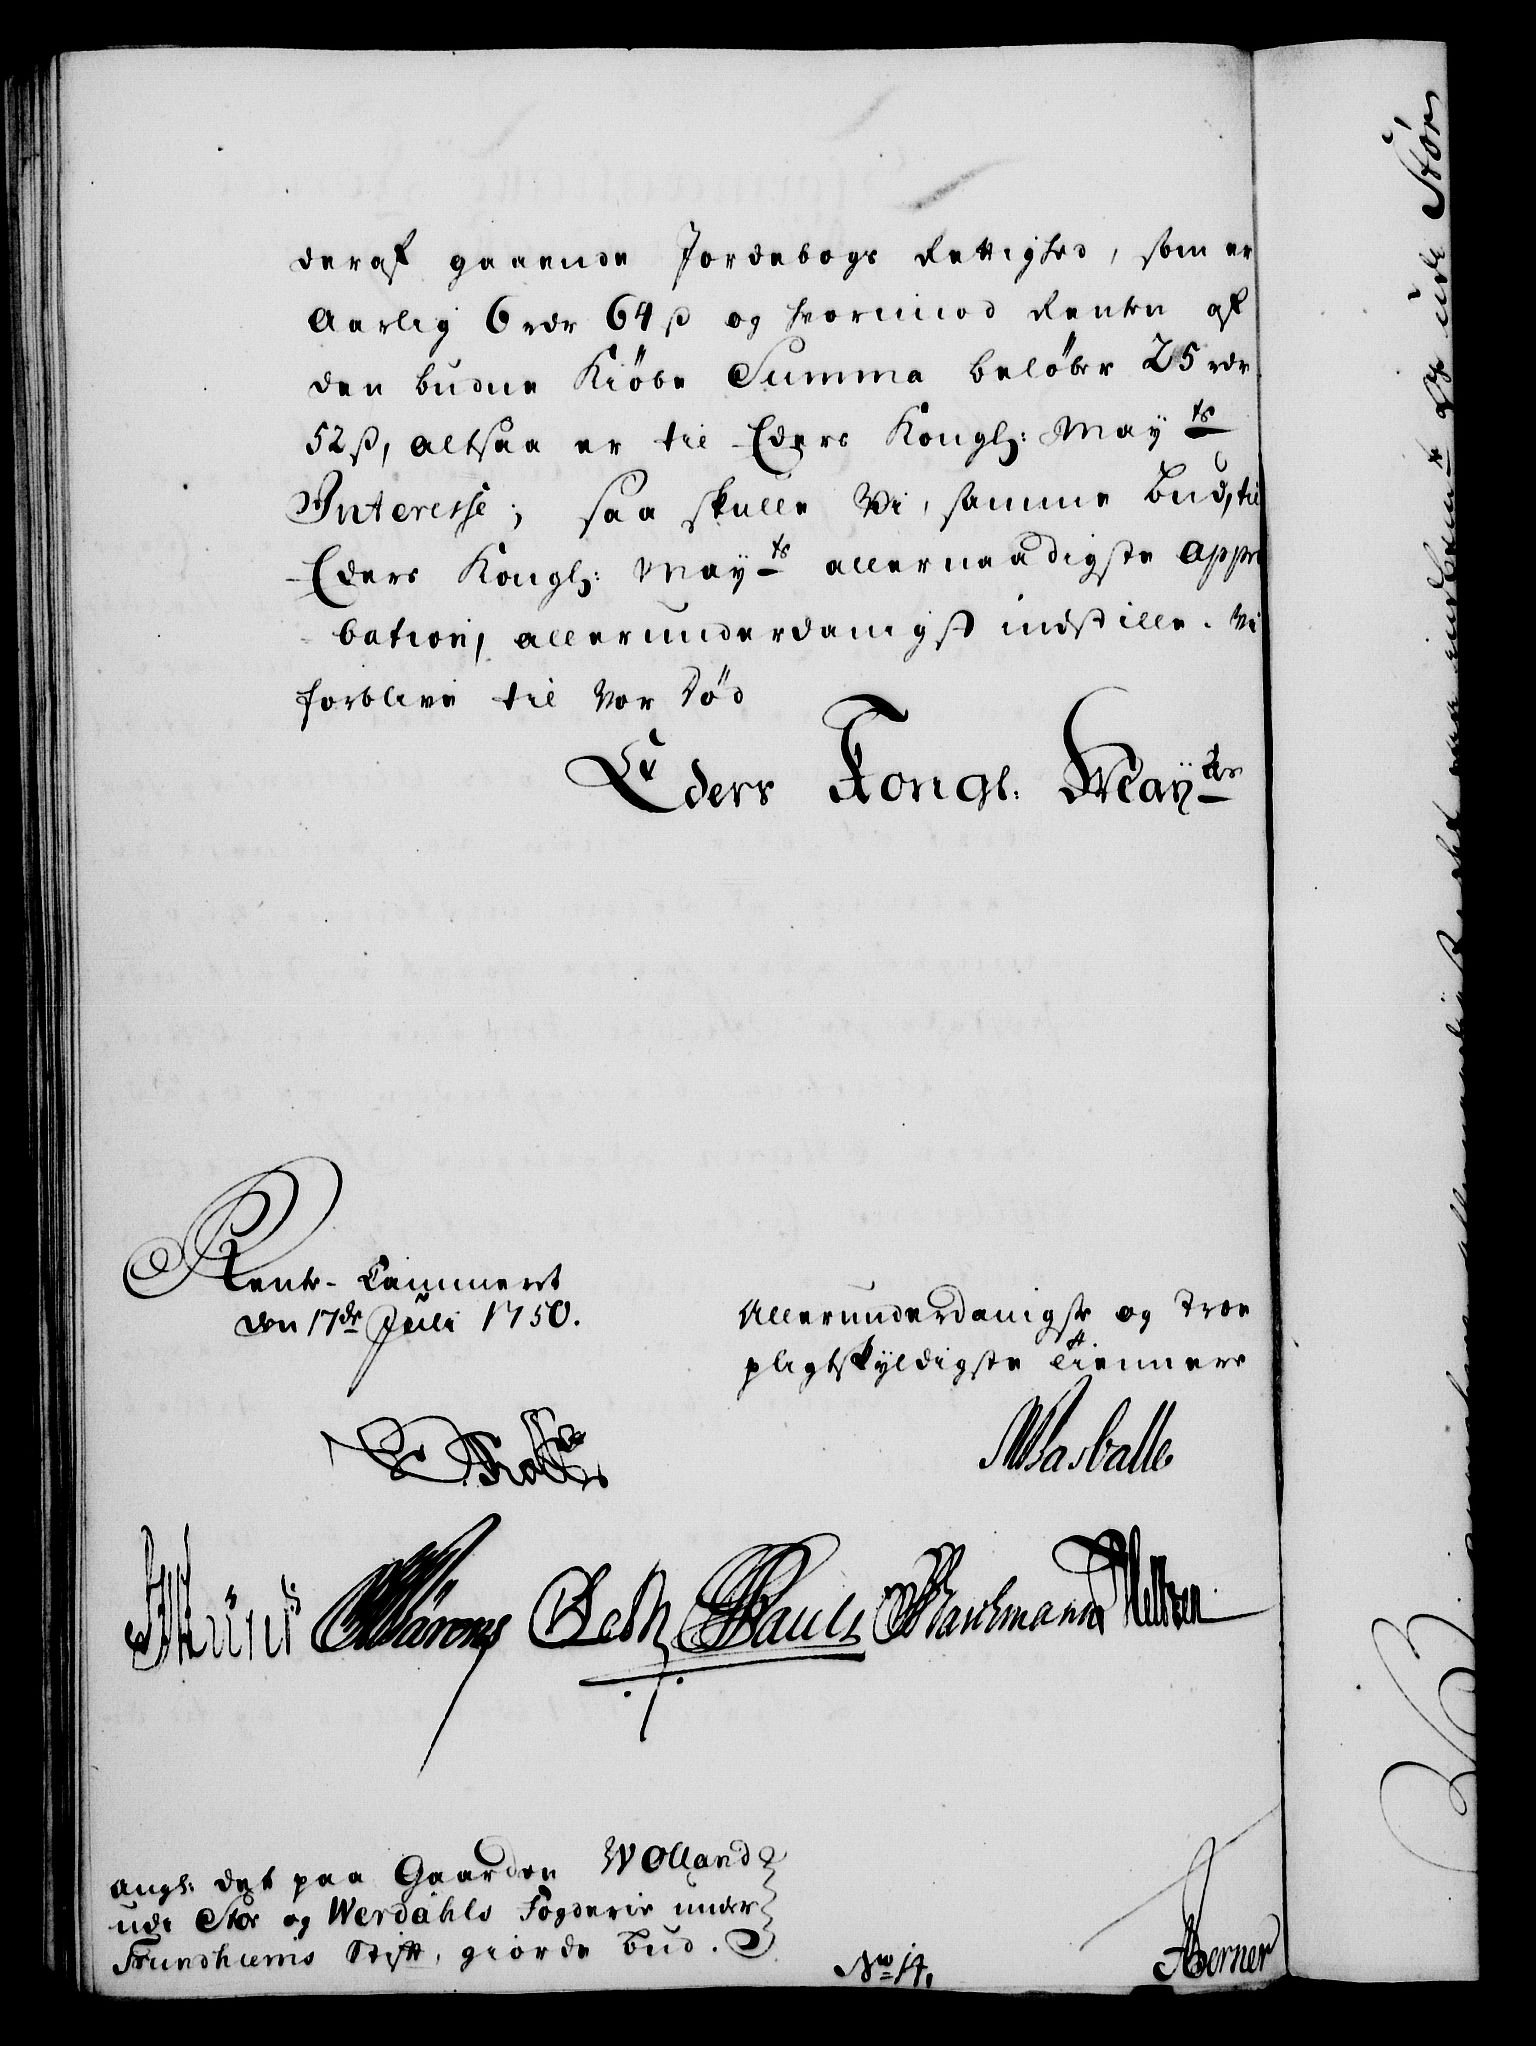 deraf gaaende Jordebogs Rettighed, som er
Aarlig 6 rdr 64 ß og hvorimod Renten af
den budne Kiöbe Summa belöber 25 rdr
52 ß, altsaa er til Eders Kongl: May^ts
Interesse; saa skulle Vi, samme Bud, til
Eders Kongl: May^ts allernaadigste Appro
bation, allerunderdanigst indstille. Vi
forblive til vor Död
Eders Kongl: May^ts
Rente-Cammeret
den 17de Julii 1750.
Allerunderdanigste og troe
pligtskyldigste Tiennere
Beth Pauli
angl: det paa Gaarden Wolland
udi Stör og Werdahls Fogderie under
Trundhiems Stift, giorde Bud.
No 14.
Berner
udi Stör